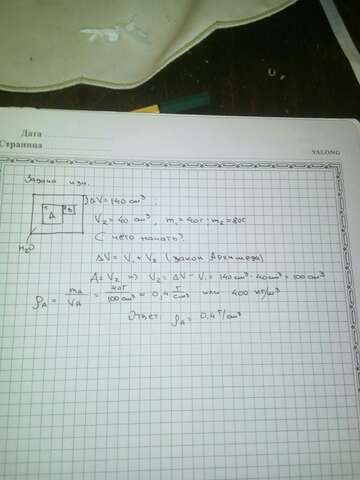 Дата
Страница
YALONG
Задача изи.
ΔV = 140 см³ ;
A
B
H₂O
V₂ = 40 см³, m₁ = 40г ; m₂ = 80г
С чего начать?
ΔV = V₁ + V₂ (закон Архимеда)
A = V₂ ⇒ V₂ = ΔV - V₁ = 140 см³ - 40 см³ = 100 см³
ρA = mA / VA = 40г / 100 см³ = 0,4 г/см³ или 400 кг/м³
Ответ: ρA = 0,4 г/см³